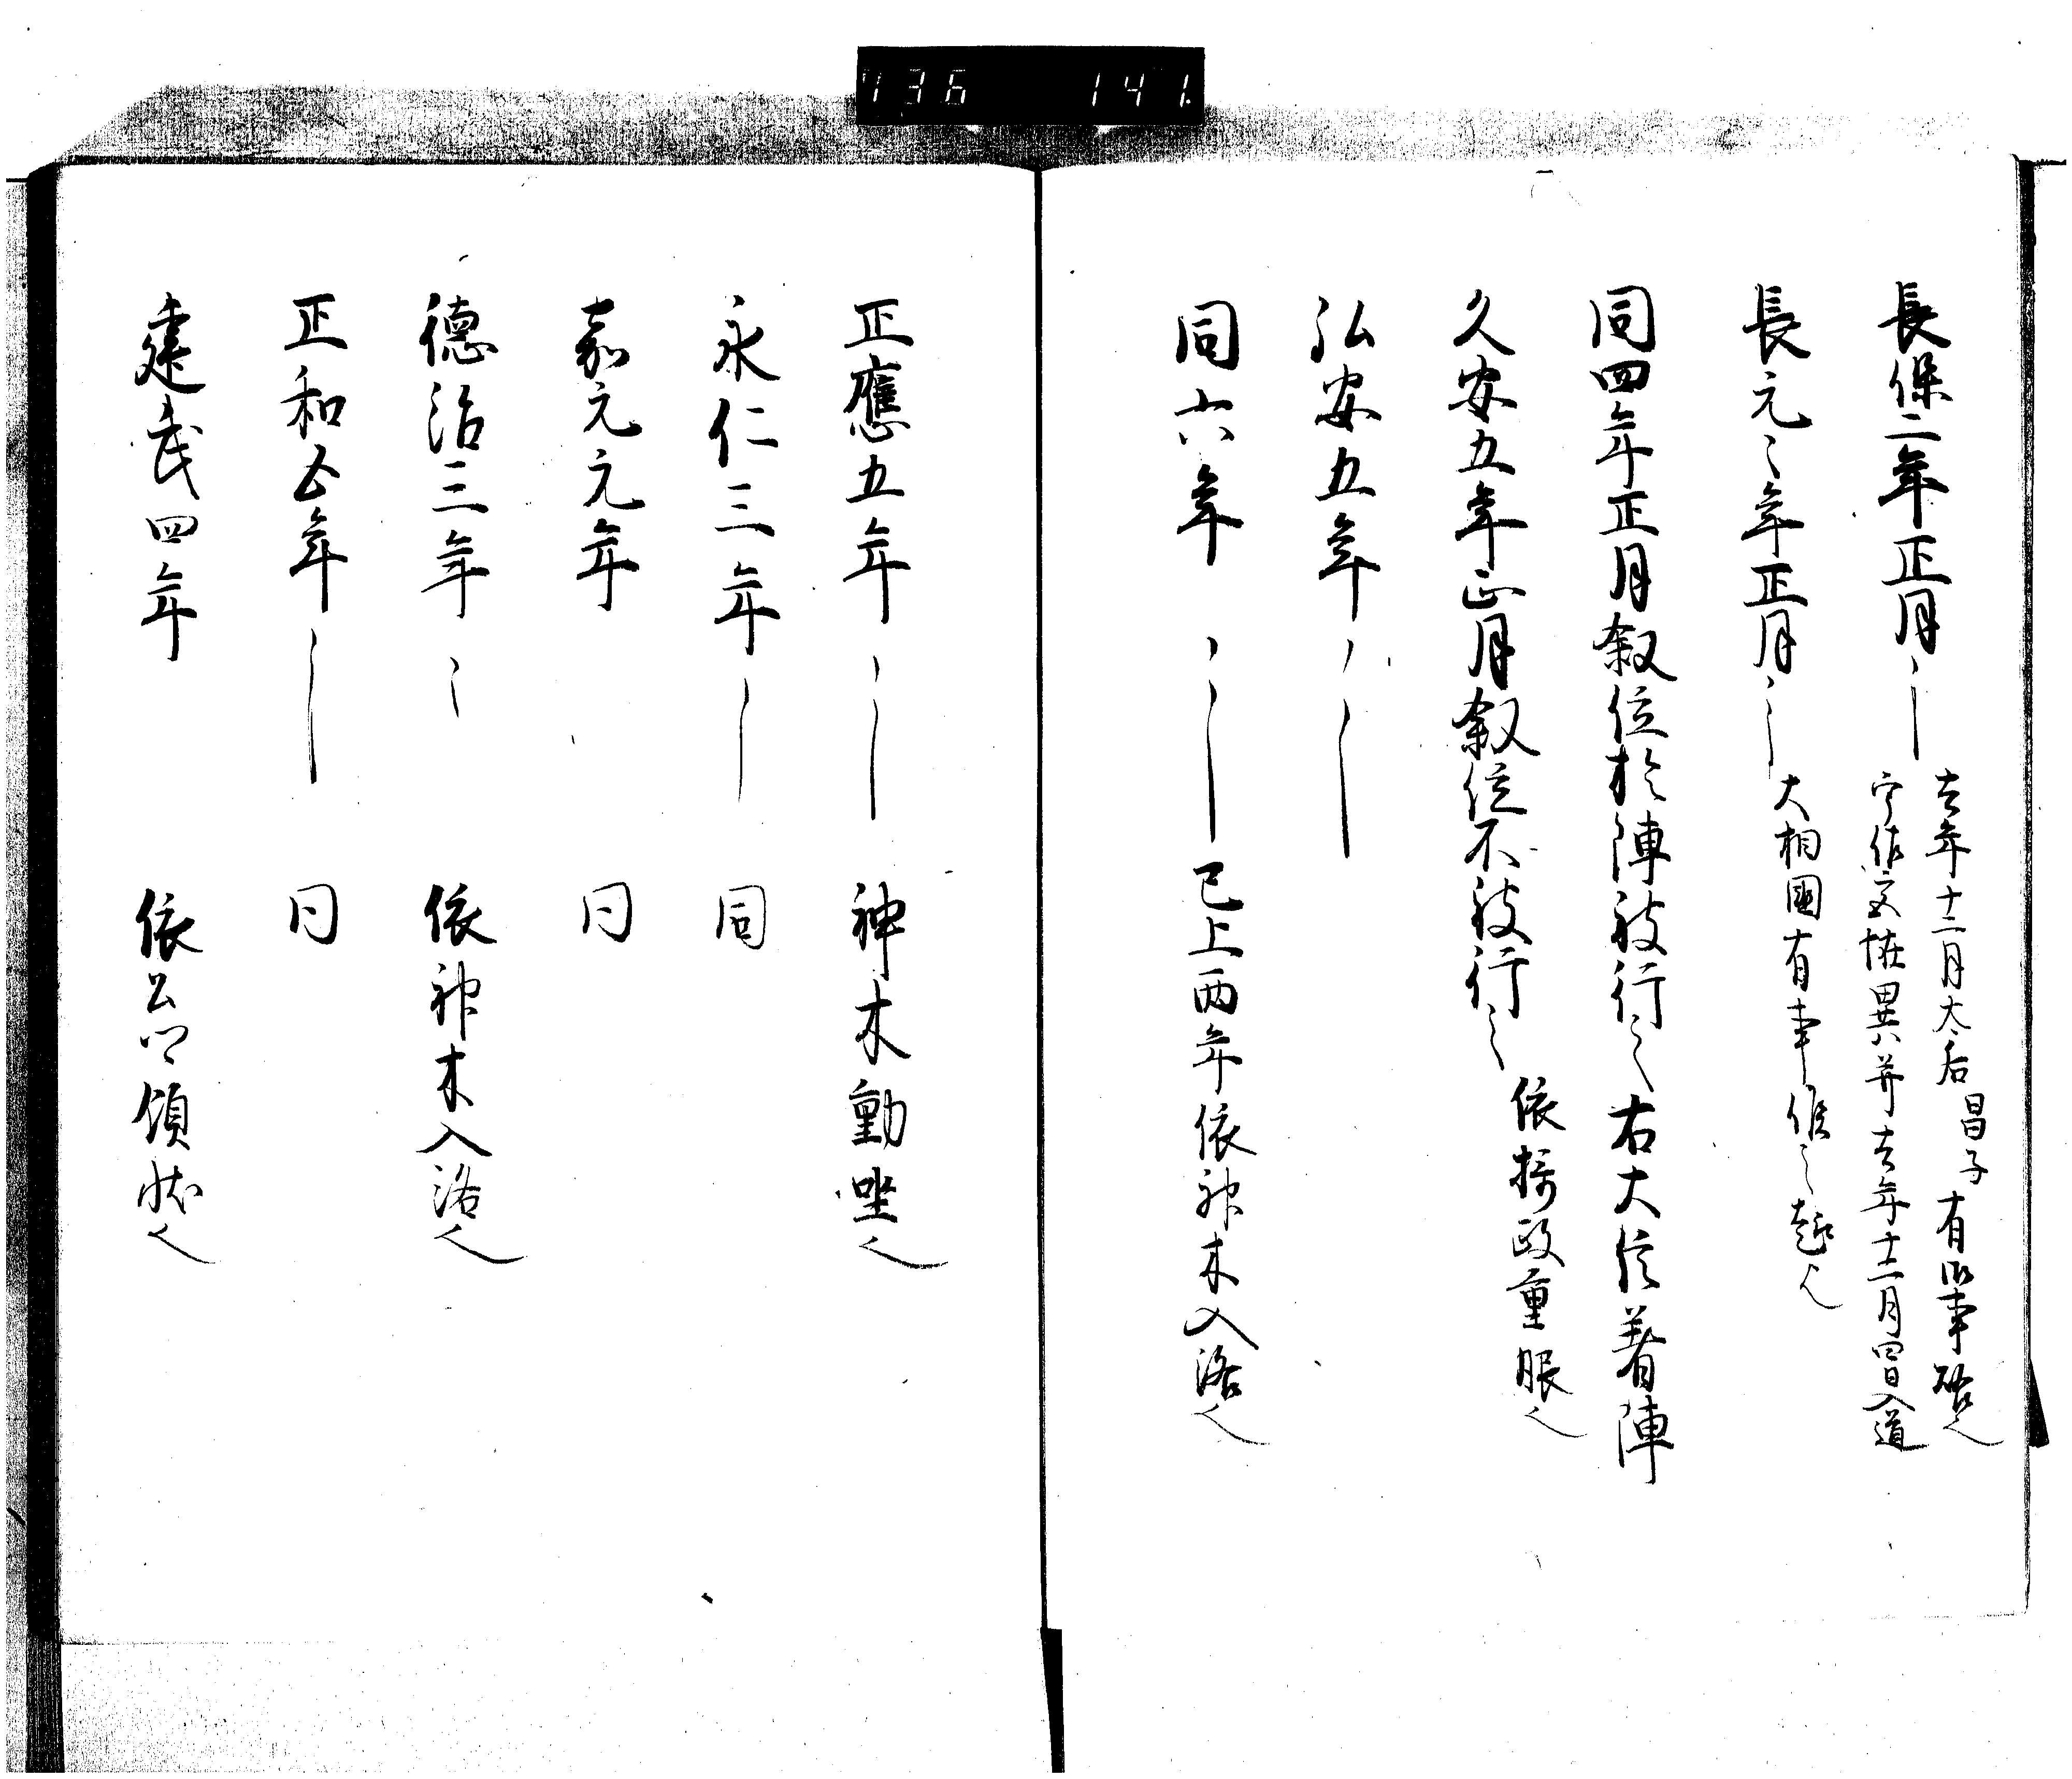 136 141
長保二年正月〻―
去年十二月太后昌子有御事
宇佐宮恠異并去年十二月四日入道
長元〻年正月〻―
大相國有事
同四年正月叙位於陣被行之右大臣着陣
久安五年正月叙位不被行之
依摂政重服也
弘安五年〻―
同六年〻〻―已上両年依神木入洛也
正應五年〻― 神木動坐也
永仁三年〻― 同
嘉元元年 同
德治三年〻〻 依神木入洛也
正和五年〻― 同
建武四年 依 領状也